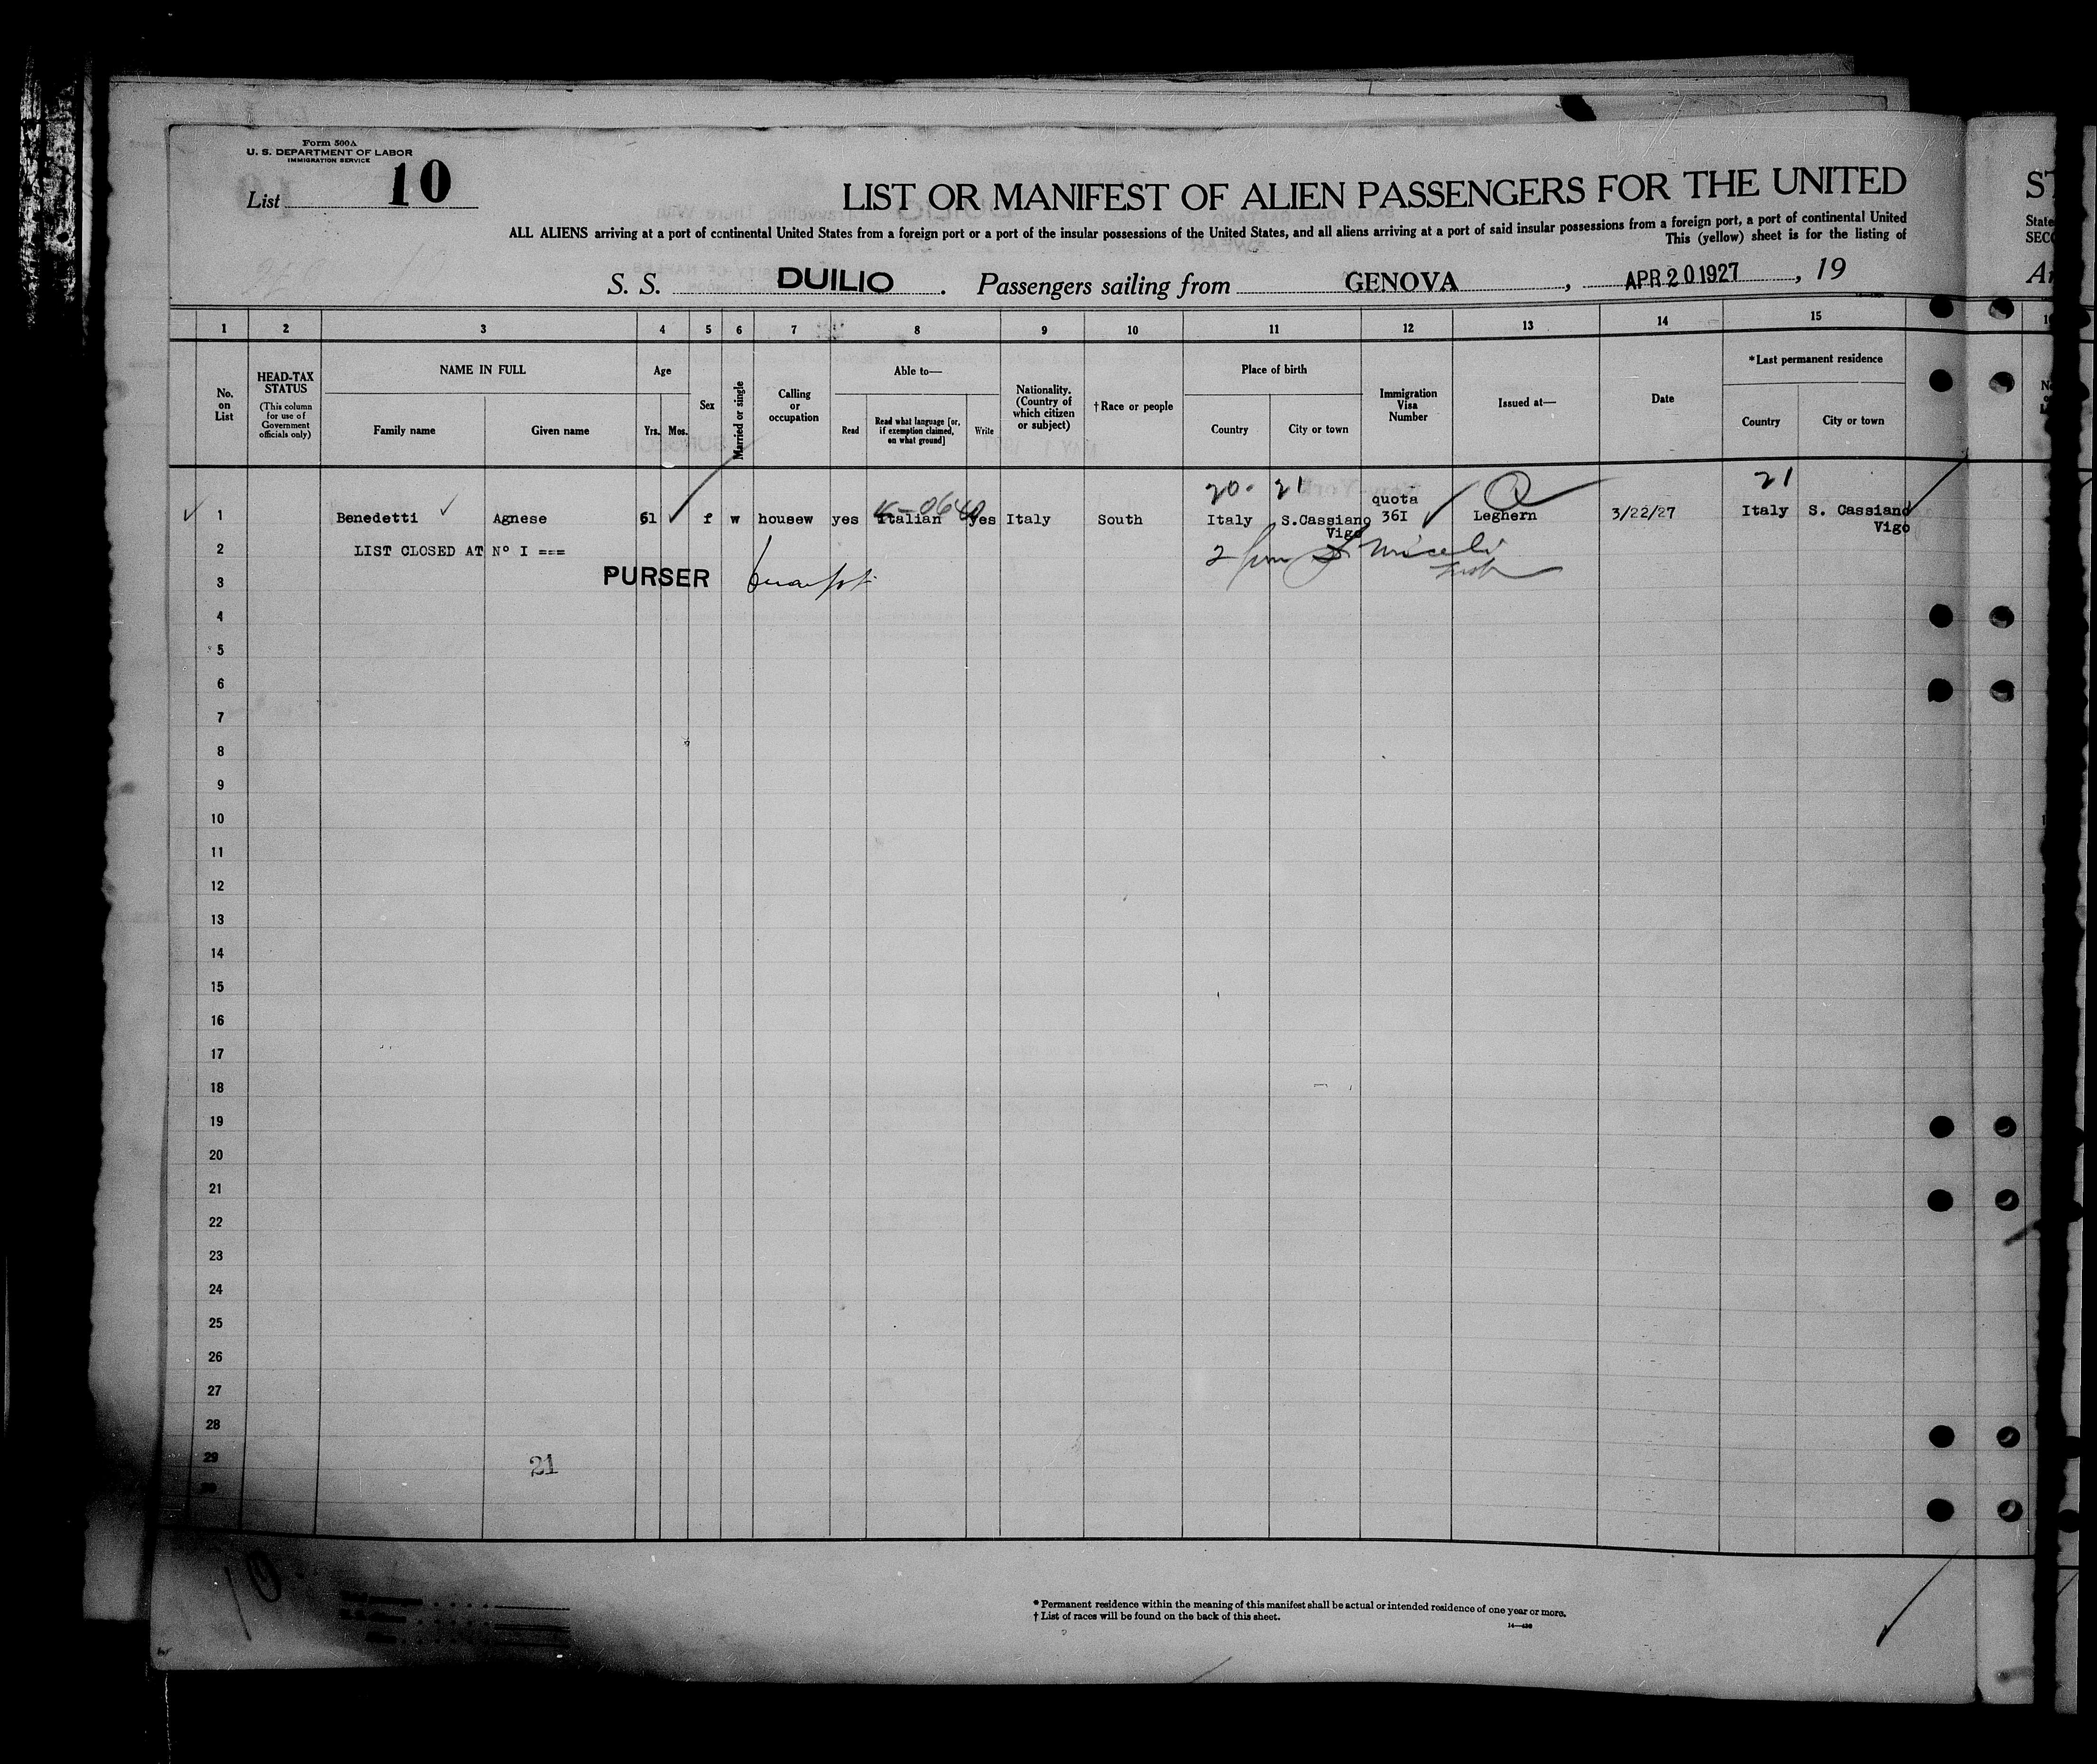 Form 500A
U. S. DEPARTMENT OF LABOR
IMMIGRATION SERVICE
List 10
LIST OR MANIFEST OF ALIEN PASSENGERS FOR THE UNITED
ST
ALL ALIENS arriving at a port of continental United States from a foreign port or a port of the insular possessions of the United States, and all aliens arriving at a port of said insular possessions from a foreign port, a port of continental United
State
This (yellow) sheet is for the listing of
SECO
S. S. DUILIO . Passengers sailing from GENOVA , APR 20 1927 , 19
1 2 3 4 5 6 7 8 9 10 11 12 13 14 15
No. on List
HEAD-TAX STATUS
(This column for use of Government officials only)
NAME IN FULL
Family name Given name
Age
Yrs. Mos.
Sex
Married or single
Calling or occupation
Able to—
Read
Read what language [or, if exemption claimed, on what ground]
Write
Nationality. (Country of which citizen or subject)
†Race or people
Place of birth
Country City or town
Immigration Visa Number
Issued at—
Date
*Last permanent residence
Country City or town
20. 21 21
1 Benedetti Agnese 61 f w housew yes Italian yes Italy South Italy S.Cassiano Vigo quota 36I Leghern 3/22/27 Italy S. Cassiano Vigo
2 LIST CLOSED AT Nº I ===
3 PURSER
4
5
6
7
8
9
10
11
12
13
14
15
16
17
18
19
20
21
22
23
24
25
26
27
28
29
30
21
10
* Permanent residence within the meaning of this manifest shall be actual or intended residence of one year or more.
† List of races will be found on the back of this sheet.